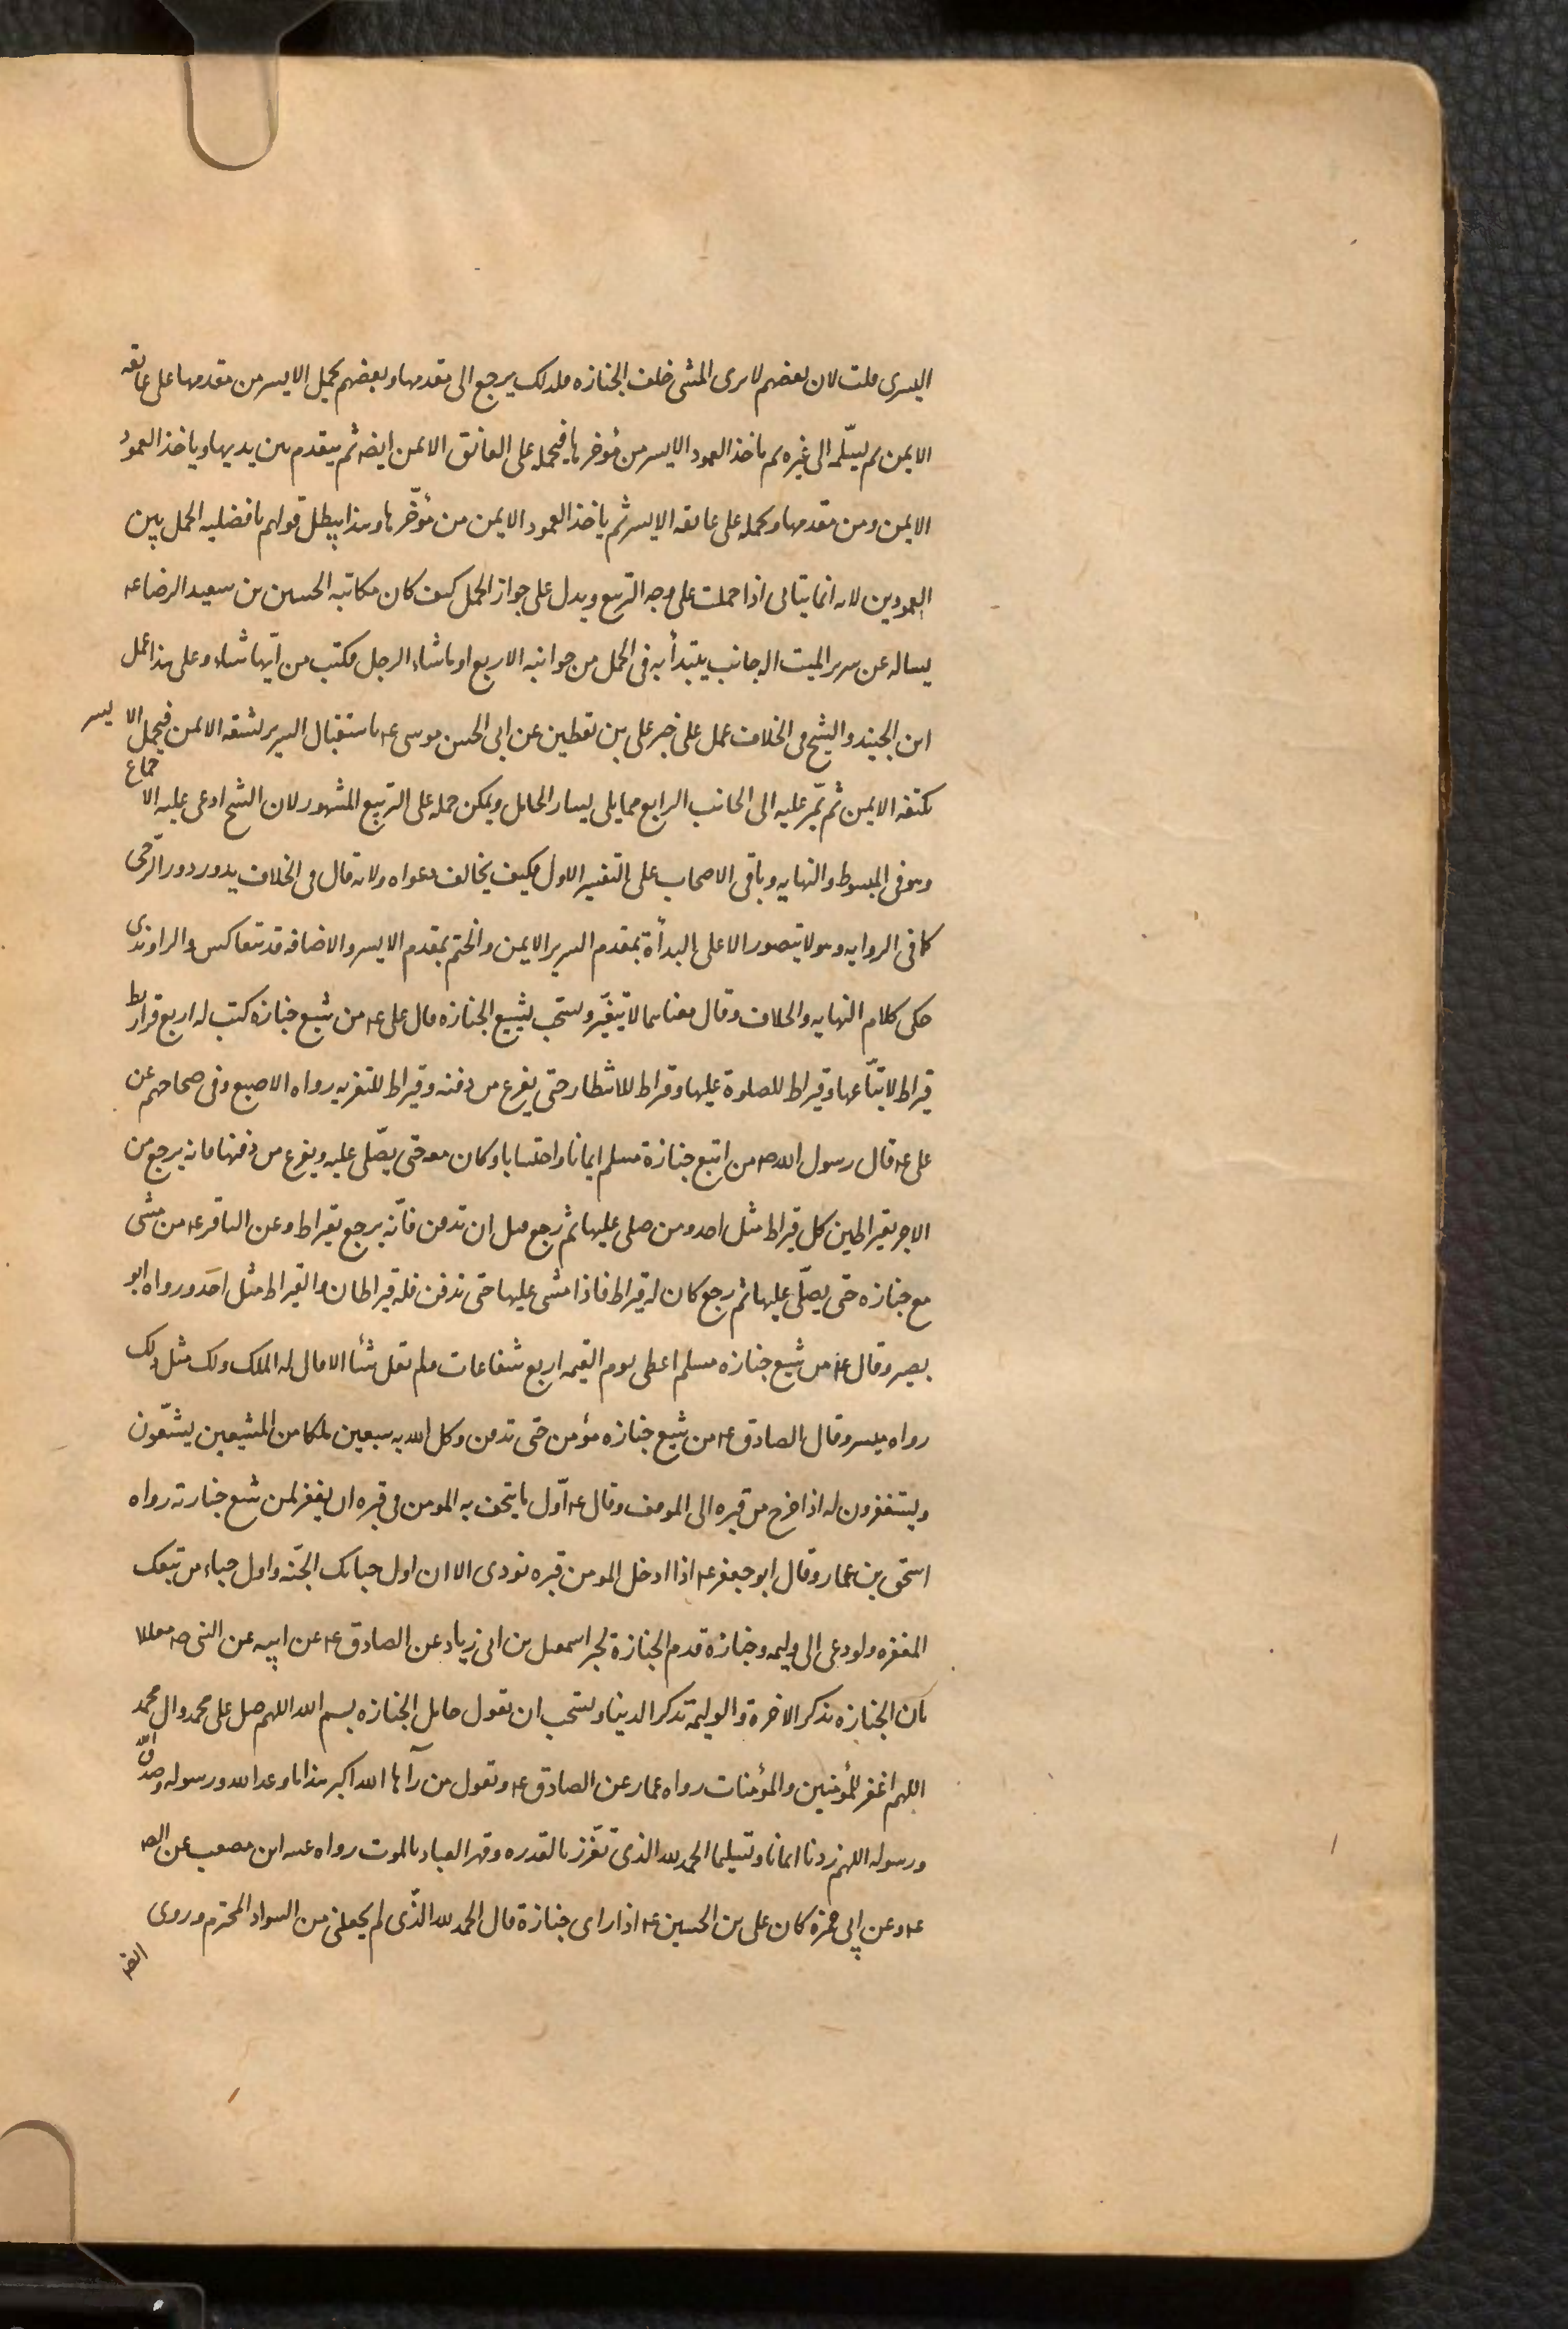 اليسرى قلت لان بعضهم لا يرى المشى خلف الجنازه فلذلك يرجع الى مقدمها وبعضهم يحمل الايسر من مقدمها على عاتقه
الايمن ثم يسلّمه الى غيره ثم ياخذ العمود الايسر من مؤخرها فيحمله على العاتق الايمن ايضه ثم يتقدم بين يديها وياخذ العمود
الايمن ومن مقدمها ويحمله على عاتقه الايسر ثم ياخذ العمود الايمن من مؤخّرها وهذا يبطل قولهم بافضليه الحمل بين
العمودين لانه انما يتاتى اذا حملت على وجه التربيع ويدل على جواز الحمل كيف كان مكاتبه الحسين بن سعيد الرضا عه
يساله عن سرير الميت اله جانب يبتدأ به فى الحمل من جوانبه الاربع او ما شاء الرجل فكتب من ايّها شاء وعلى هذا عمل
ابن الجنيد والشيخ فى الخلاف عمل على خبر على بن يقطين عن ابى الحسن موسى عه باستقبال السرير لشقه الايمن فيحمل الايسر
بكتفه الايمن ثم يمّر عليه الى الجانب الرابع مما يلى يسار الحامل ويمكن حمله على التربيع المشهور لان الشيخ ادعى عليه الاجماع
وهو فى المبسوط والنهايه وباقى الاصحاب على التفسير الاول فكيف يخالف دعواه ولانه قال فى الخلاف يدور دور الرّحى
كما فى الروايه وهو لا يتصور الا على البدأة بمقدم السرير الايمن والختم بمقدم الايسر والاضافه قد تتعاكس والراوندى
حكى كلام النهايه والخلاف وقال معناهما لا يتغيّر ويستحب تشييع الجنازه قال على عه من شيع جنازه كتب له اربع قراريط
قيراط لاتبّاعها وقيراط للصلوة عليها وقيراط للانتظار حتى يفرغ من دفنه وقيراط للتعزيه رواه الاصبغ وفى صحاحهم عن
على عه قال رسول الله صه من اتبع جنازة مسلم ايمانا واحتسابا وكان معه حتى يصّلى عليه ويفرغ من دفنها فانه يرجع من
الاجر بقيراطين كل قيراط مثل احد ومن صلى عليها ثم رجع قبل ان تدفن فانّه يرجع بقيراط وعن الباقر عه من مشى
مع جنازه حتى يصلّى عليها ثم رجع كان له قيراط فاذا مشى عليها حتى تدفن فله قيراطان والقيراط مثل احَد ورواه ابو
بصير وقال عه من شيع جنازه مسلم اعطى يوم القيمه اربع شفاعات ولم يقل شئا الا قال له الملك ولك مثل ذلك
رواه ميسر وقال الصادق عه من شيع جنازه مؤمن حتى تدفن وكل الله به سبعين ملكا من المشيعين يشيّعون
ويستغفرون له اذا خرج من قبره الى الموقف وقال عه اوّل ما يتحف به المومن فى قبره ان يغفر لمن شيع جنازته رواه
اسحق بن عمار وقال ابو جعفر عه اذا ادخل المومن قبره نودى الا ان اول حبائك الجنّة واول حباء من تبعك
المغفره ولو دعى الى وليمه وجنازة قدم الجنازة لخبر اسمعيل بن ابى زياد عن الصادق عه عن ابيه عن النبى صه معللا
بان الجنازه تذكر الاخرة والوليمة تذكر الدينا ويستحب ان يقول حامل الجنازه بسم الله اللهم صل على محمد وال محمد
اللهم اغفر للمؤمنين والمؤمنات رواه عمار عن الصادق عه ويقول من رآها الله اكبر هذا ما وعد الله ورسوله وصدق الله
ورسوله اللهم زدنا ايمانا وتسليما الحمد لله الذى تعّزز بالقدره وقهر العباد بالموت رواه عنبسه ابن مصعب عن الصه
عه وعن ابى حمزه كان على بن الحسين عه اذا راى جنازة قال الحمد لله الذّى لم يجعلنى من السواد المخترم وروى